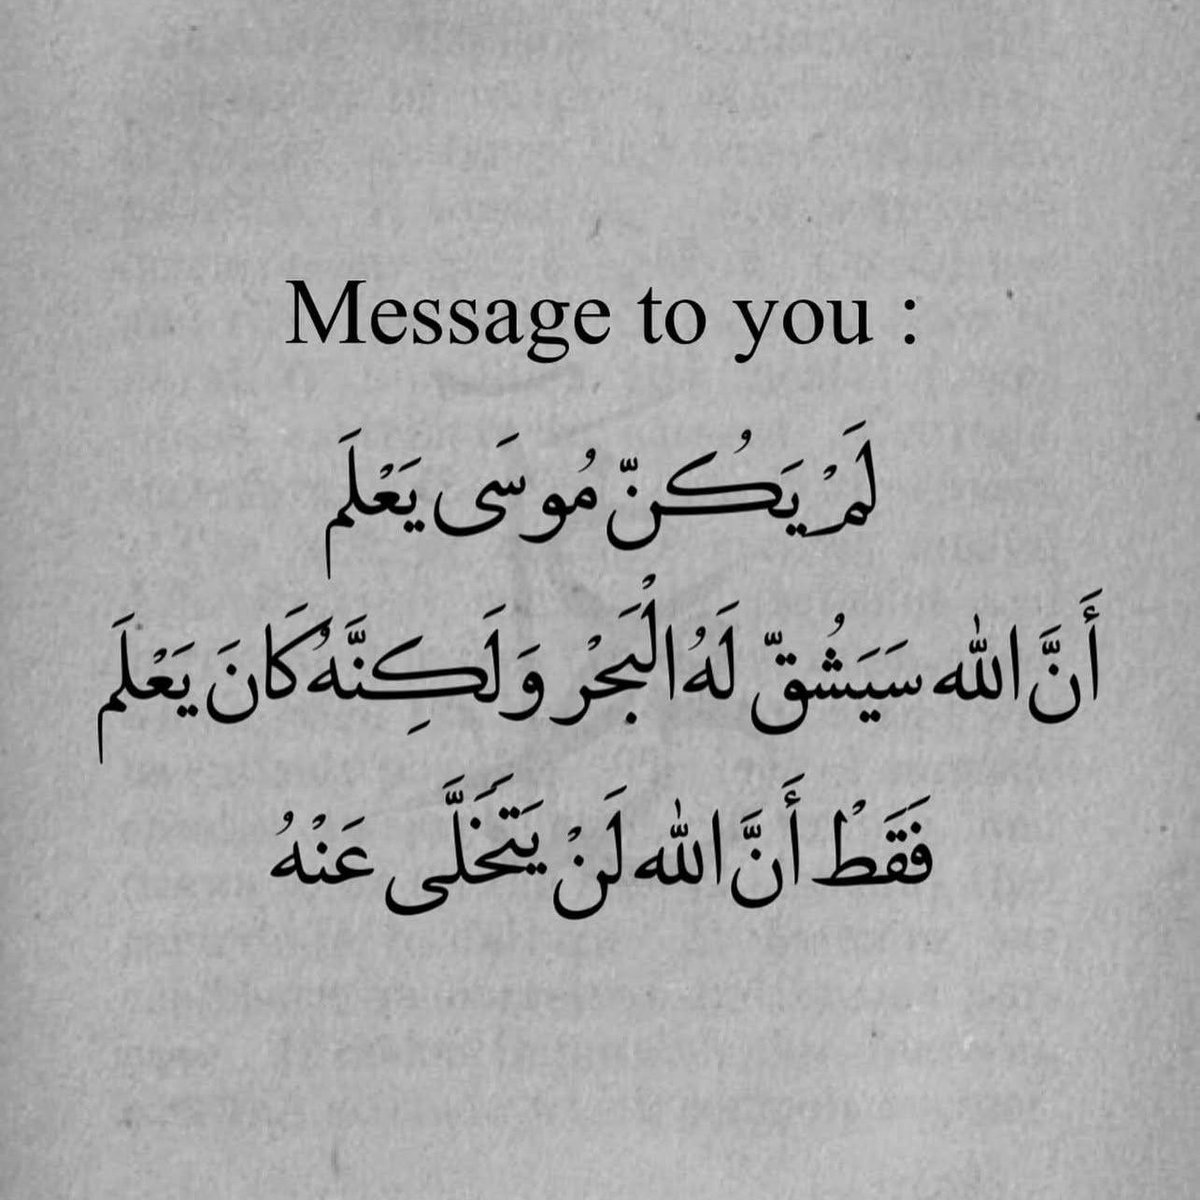 Message to you :
لَمْ يَكُنّ مُوسَى يَعْلَم
أَنَّ اللّٰه سَيَشُقّ لَهُ الْبَحْر وَلَكِنَّهُ كَانَ يَعْلَم
فَقَطْ أَنَّ اللّٰه لَنْ يَتَخَلَّى عَنْهُ